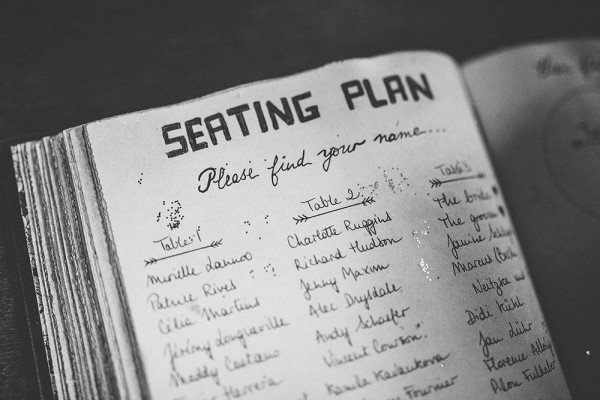 SEATING PLAN
Please find your name...
Table 1
Murielle
Patrice Rives
Célia Martins
Jérémy Longueville
Maddy Castano
Herreria
Table 2
Charlotte Ruggins
Richard Hudson
Jenny Maxim
Alec Drysdale
Andy Schaefer
Vincent
Kamila
Fournier
Table 3
The bride
The groom
Janine
Marcus
Didi Kühl
Jan Lühr
Florence